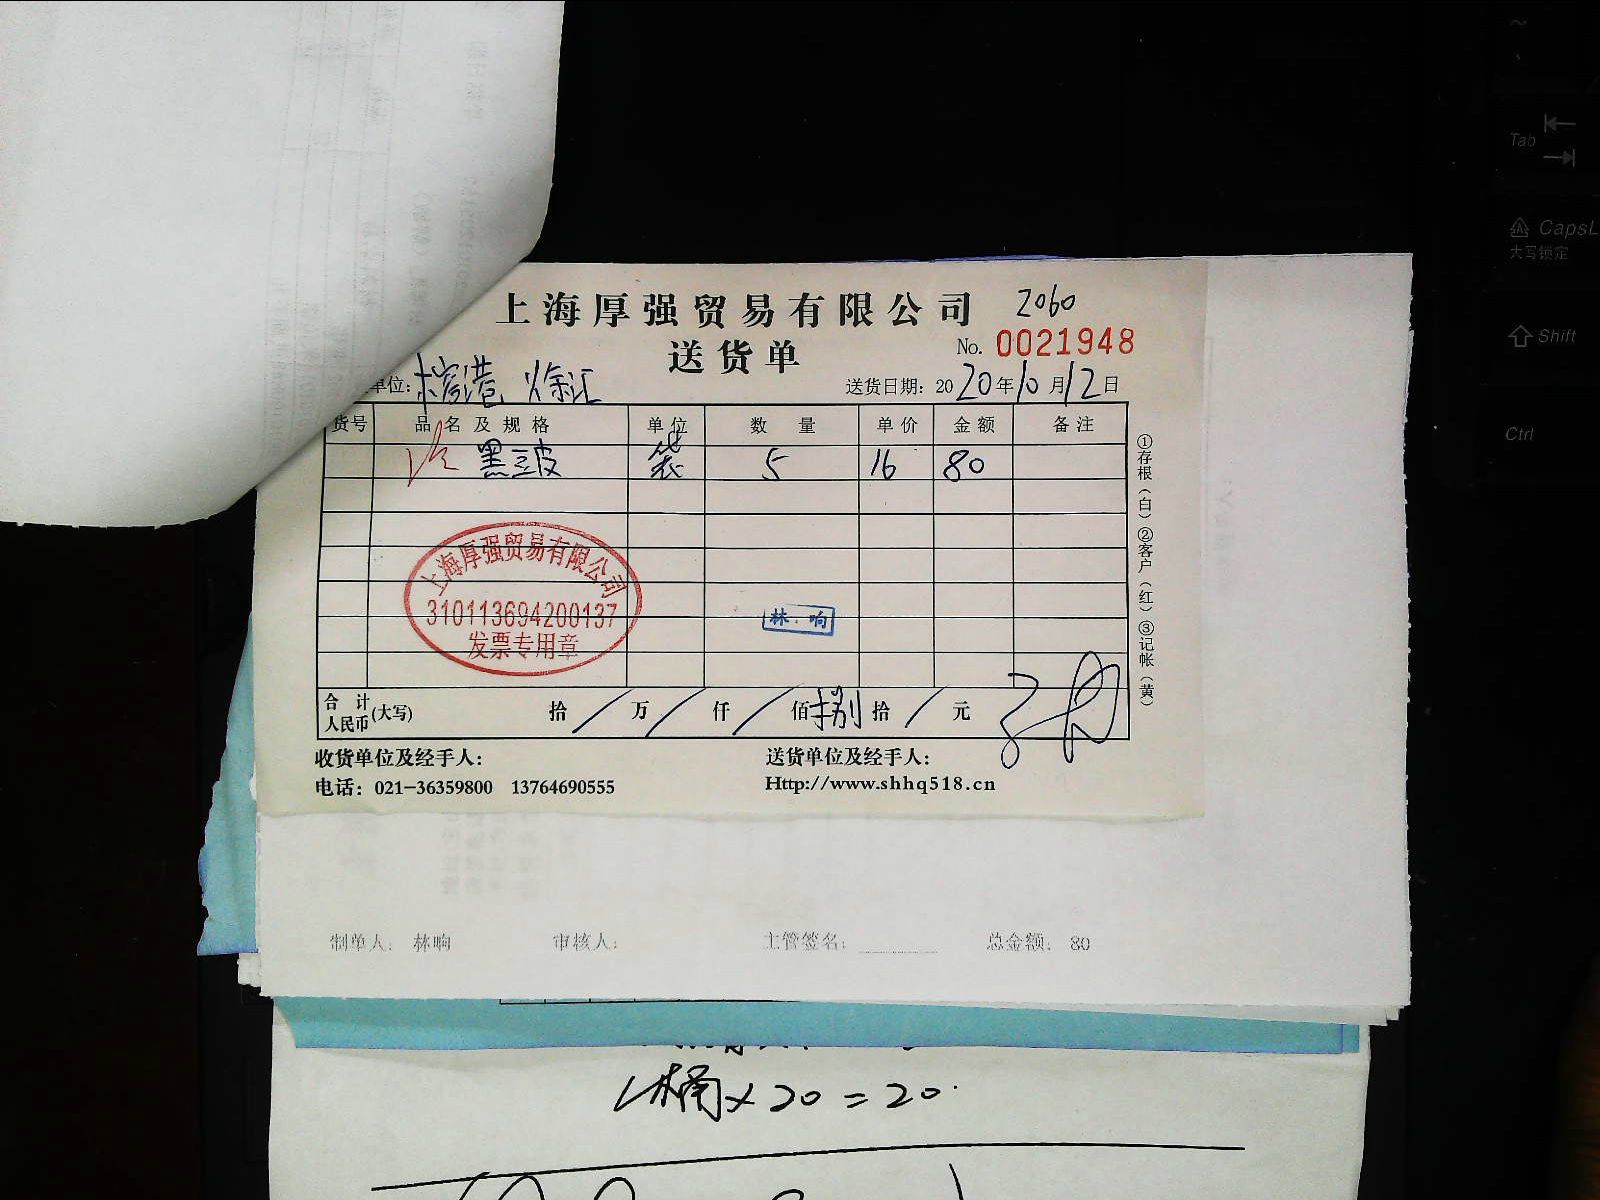 上海厚强贸易有限公司 2060
送货单 No. 0021948
单位: 榕港 徐汇 送货日期: 2020年10月12日
货号 品名及规格 单位 数量 单价 金额 备注
黑豆皮 袋 5 16 80
①存根(白)②客户(红)③记帐(黄)
上海厚强贸易有限公司
310113694200137
发票专用章
林响
合计人民币(大写) 拾/万/仟/佰捌拾/元
收货单位及经手人: 送货单位及经手人:
电话: 021-36359800 13764690555 Http://www.shhq518.cn
制单人: 林响 审核人: 主管签名: 总金额: 80
1桶×20=20
Tab
CapsL
大写锁定
Shift
Ctrl